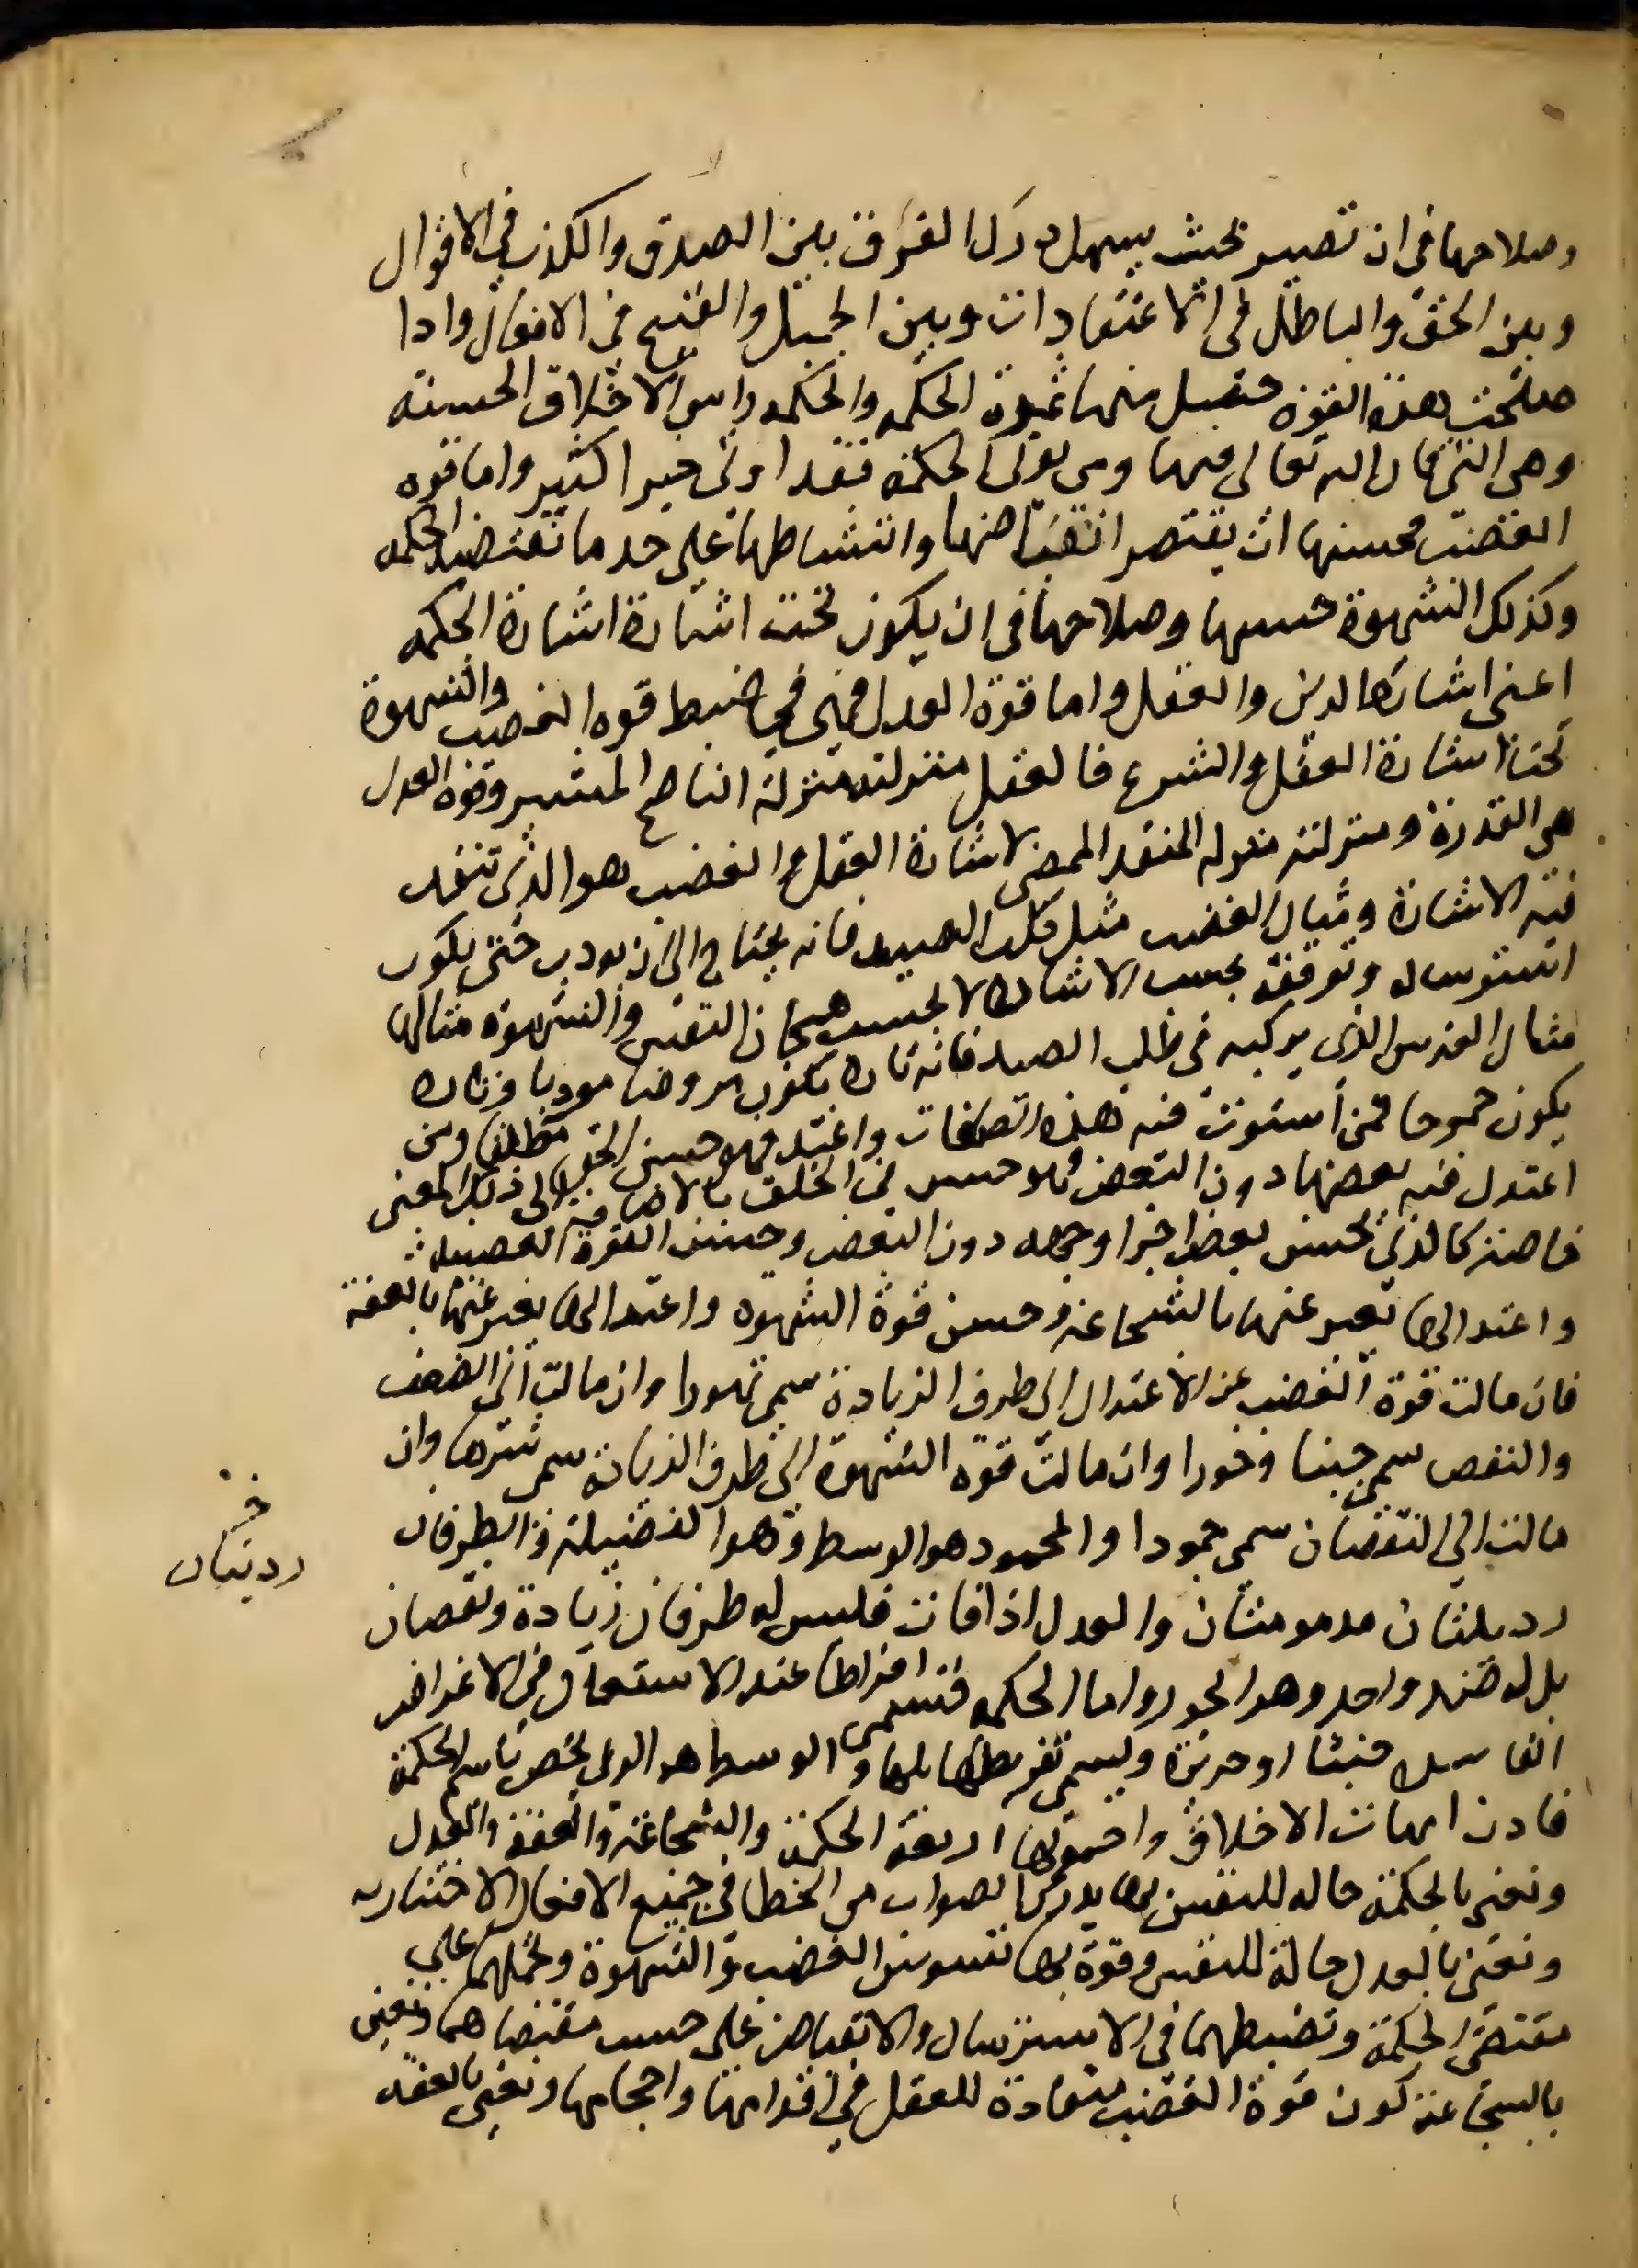 وصلاحها في ان تصير بحيث يسهل درك الفرق بين الصدق والكذب في الاقوال
وبين الحق والباطل في الاعتقادات وبين الجميل والقبيح في الافعال واذا
صلحت هذه القوة حصل منها ثمرة الحكمه والحكمه راس الاخلاق الحسنه
وهي التي قال الله تعالى فيها ومن يوتى الحكمة فقد اوتى خيرا كثيرا واما قوه
الغضب فحسنها ان يقتصر انقباضها وانبساطها على حد ما تقتضيه الحكمه
وكذلك الشهوة حسنها وصلاحها في ان يكون تحت اشارة اشارة الحكمه
اعنى اشارة الدين والعقل واما قوة العدل فهي في ضبط قوه الغضب والشهوة
تحت اشارة العقل والشرع فالعقل منزلته منزلة الناصح المشير وقوه العدل
هي القدرة ومنزلتها منزله المنفذ الممضى لاشارة العقل والغضب هو الذى تنفذ
فيه الاشارة ومثال الغضب مثل كلب الصيد فانه يحتاج الى ان يودب حتى يكون
استرساله وتوقفه بحسب الاشارة لا بحسب هيجان النفس والشهوة مثالها
مثال الفرس الذى يركبه في طلب الصيد فانه تارة يكون مروضا مودبا وتارة
يكون جموحا فمن استوت فيه هذه الصفات واعتدلت فهو حسن الخلق مطلقا ومن
اعتدل فيه بعضها دون البعض فهو حسن في الخلق بالاضافة الى ذلك المعنى
خاصة كالذى يحسن بعض اجزا وجهه دون البعض وحسن القوة الغضبيه
واعتدالها يعبر عنها بالشجاعة وحسن قوة الشهوه واعتدالها يعبر عنها بالعفة
فان مالت قوة الغضب عن الاعتدال الى طرف الزيادة سمى تهورا وان مالت الى الضعف
والنقص سمى جبنا وخورا وان مالت قوة الشهوة الى طرف الزيادة سمى شرها وان
مالت الى النقصان سمى جمودا والمحمود هو الوسط وهو الفضيلة والطرفان
رديلتان مذمومتان والعدل اذا فات فليس له طرفان زيادة ونقصان
بل له ضد واحد وهو الجور واما الحكمه فتسمى افراطها عند الاستعمال في الاغراض
الفاسده خبثا وجربزة ويسمى تفريطها بلها والوسط هو الذى يختص باسم الحكمة
فاذن امهات الاخلاق واصولها اربعة الحكمة والشجاعة والعفة والعدل
ونعنى بالحكمة حاله للنفس بها يدرك الصواب من الخطا في جميع الافعال الاختياريه
ونعنى بالعدل حالة للنفس وقوة بها تسوس الغضب والشهوة وتحملهما على
مقتضى الحكمة وتضبطهما في الاسترسال والانقباض على حسب مقتضاها ونعنى
بالشجاعة كون قوة الغضب منقادة للعقل في اقدامها واحجامها ونعنى بالعفه